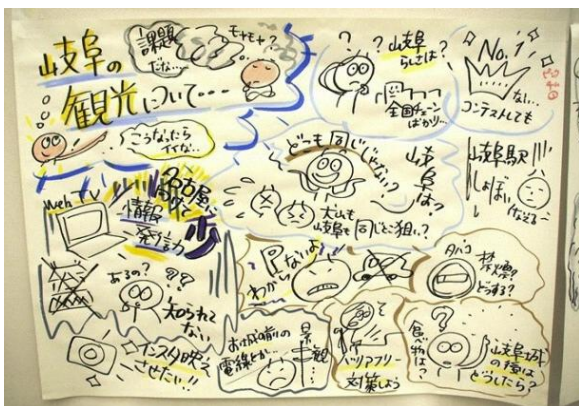 岐阜の
観光について・・・
課題
だな...
モヤモヤ?
こうなったら
イイな...
? ?
岐阜
らしさは?
全国チェーン
ばかり...
No.1
ない...
コンテストしても
どこも同じじゃない?
岐阜は?
犬山も
岐阜も同じとこ狙い?
岐阜駅
しょぼい
Web TV
名古屋
情報
発信力
あるの?
??
知られて
ない
インスタ映え
させたい!!
P ないよ
わからない
タバコ
禁煙?
どうする?
お城の前の
電線とか...
景観
バリアフリー
対策しよう
食べ物は?
岐阜城
の後は
どうしたら?